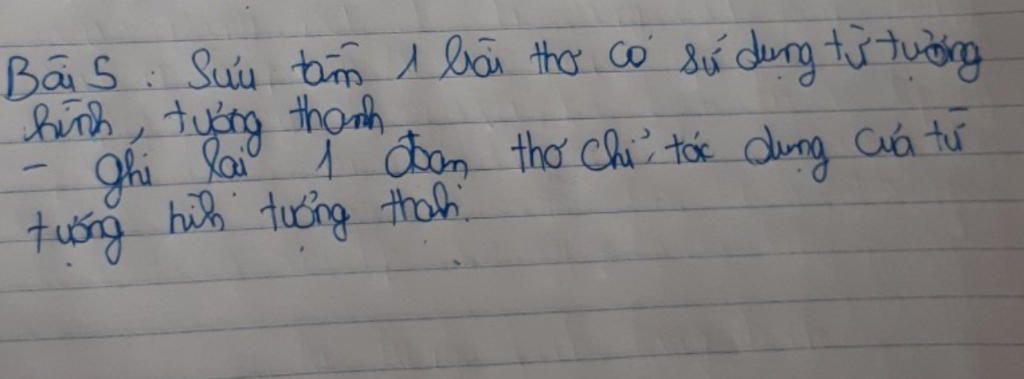 Bài 5 : Sưu tầm 1 bài thơ có sử dụng từ tượng
hình, tượng thanh
- ghi lại 1 đoạn thơ chỉ tác dụng của từ
tượng hình tượng thanh.